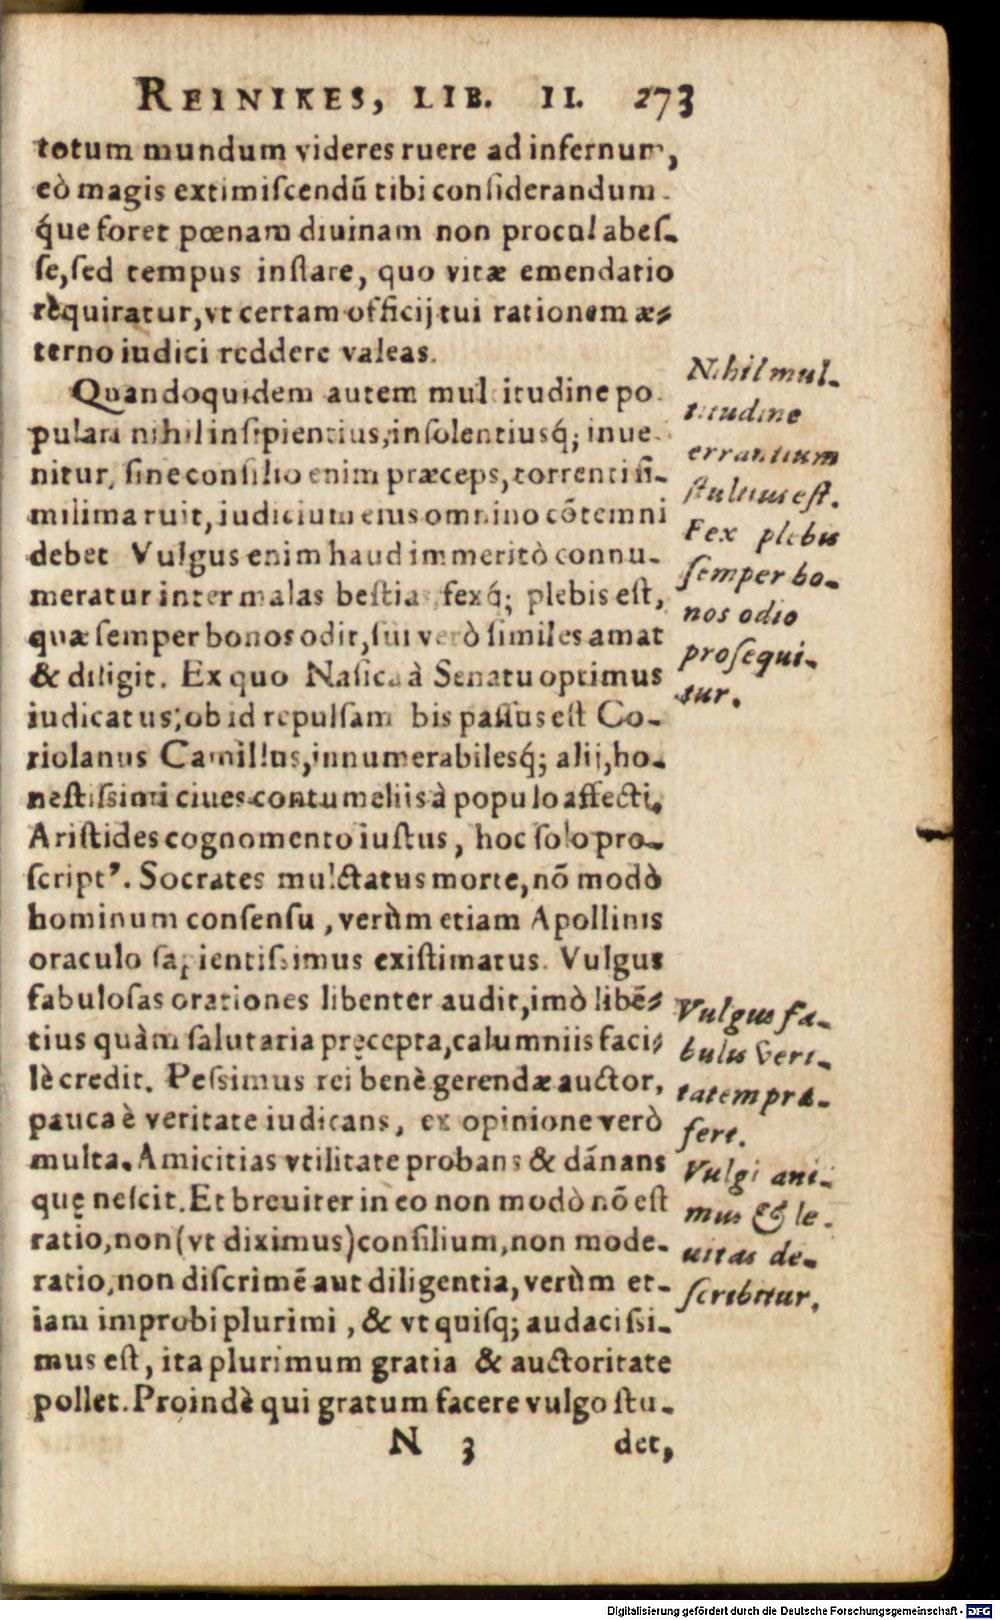 REINIKES, LIB. II. 273
totum mundum videres ruere ad infernum,
eò magis extimiſcendū tibi conſiderandum-
q́ue foret pœnam diuinam non procul abeſ-
ſe, ſed tempus inſtare, quo vitæ emendatio
rèquiratur, vt certam officij tui rationem æ-
terno iudici reddere valeas.
Quandoquidem autem multitudine po-
pulari nihil inſipientius, inſolentiusq́; inue-
nitur, ſine conſilio enim præceps, torrenti ſi-
milima ruit, iudicium eius omnino cōtemni
debet Vulgus enim haud immeritò connu-
meratur inter malas beſtias, fexq́; plebis eſt,
quæ ſemper bonos odit, ſui verò ſimiles amat
& diligit. Ex quo Naſica à Senatu optimus
iudicatus; ob id repulſam bis paſſus eſt Co-
riolanus Camillus, innumerabilesq́; alij, ho-
neſtiſsimi ciues contumeliis à populo affecti.
Ariſtides cognomento iuſtus, hoc ſolo pro-
ſcript⁹. Socrates mulctatus morte, nō modò
hominum conſenſu, verùm etiam Apollinis
oraculo ſapientiſsimus exiſtimatus. Vulgus
fabuloſas orationes libenter audit, imò libē-
tius quàm ſalutaria pręcepta, calumniis faci-
lè credit. Peſsimus rei benè gerendæ auctor,
pauca è veritate iudicans, ex opinione verò
multa. Amicitias vtilitate probans & dānans
quę neſcit. Et breuiter in eo non modò nō eſt
ratio, non (vt diximus) conſilium, non mode-
ratio, non diſcrimē aut diligentia, verùm et-
iam improbi plurimi, & vt quiſq; audaciſsi-
mus eſt, ita plurimum gratia & auctoritate
pollet. Proindè qui gratum facere vulgo ſtu-
N 3 det,
Nihil mul-
titudine
errantium
ſtultius eſt.
Fex plebis
ſemper bo-
nos odio
proſequi-
tur.
Vulgus fa-
bulis veri-
tatem præ-
fert.
Vulgi ani-
mus & le-
uitas de-
ſcribitur.
Digitalisierung gefördert durch die Deutsche Forschungsgemeinschaft - DFG